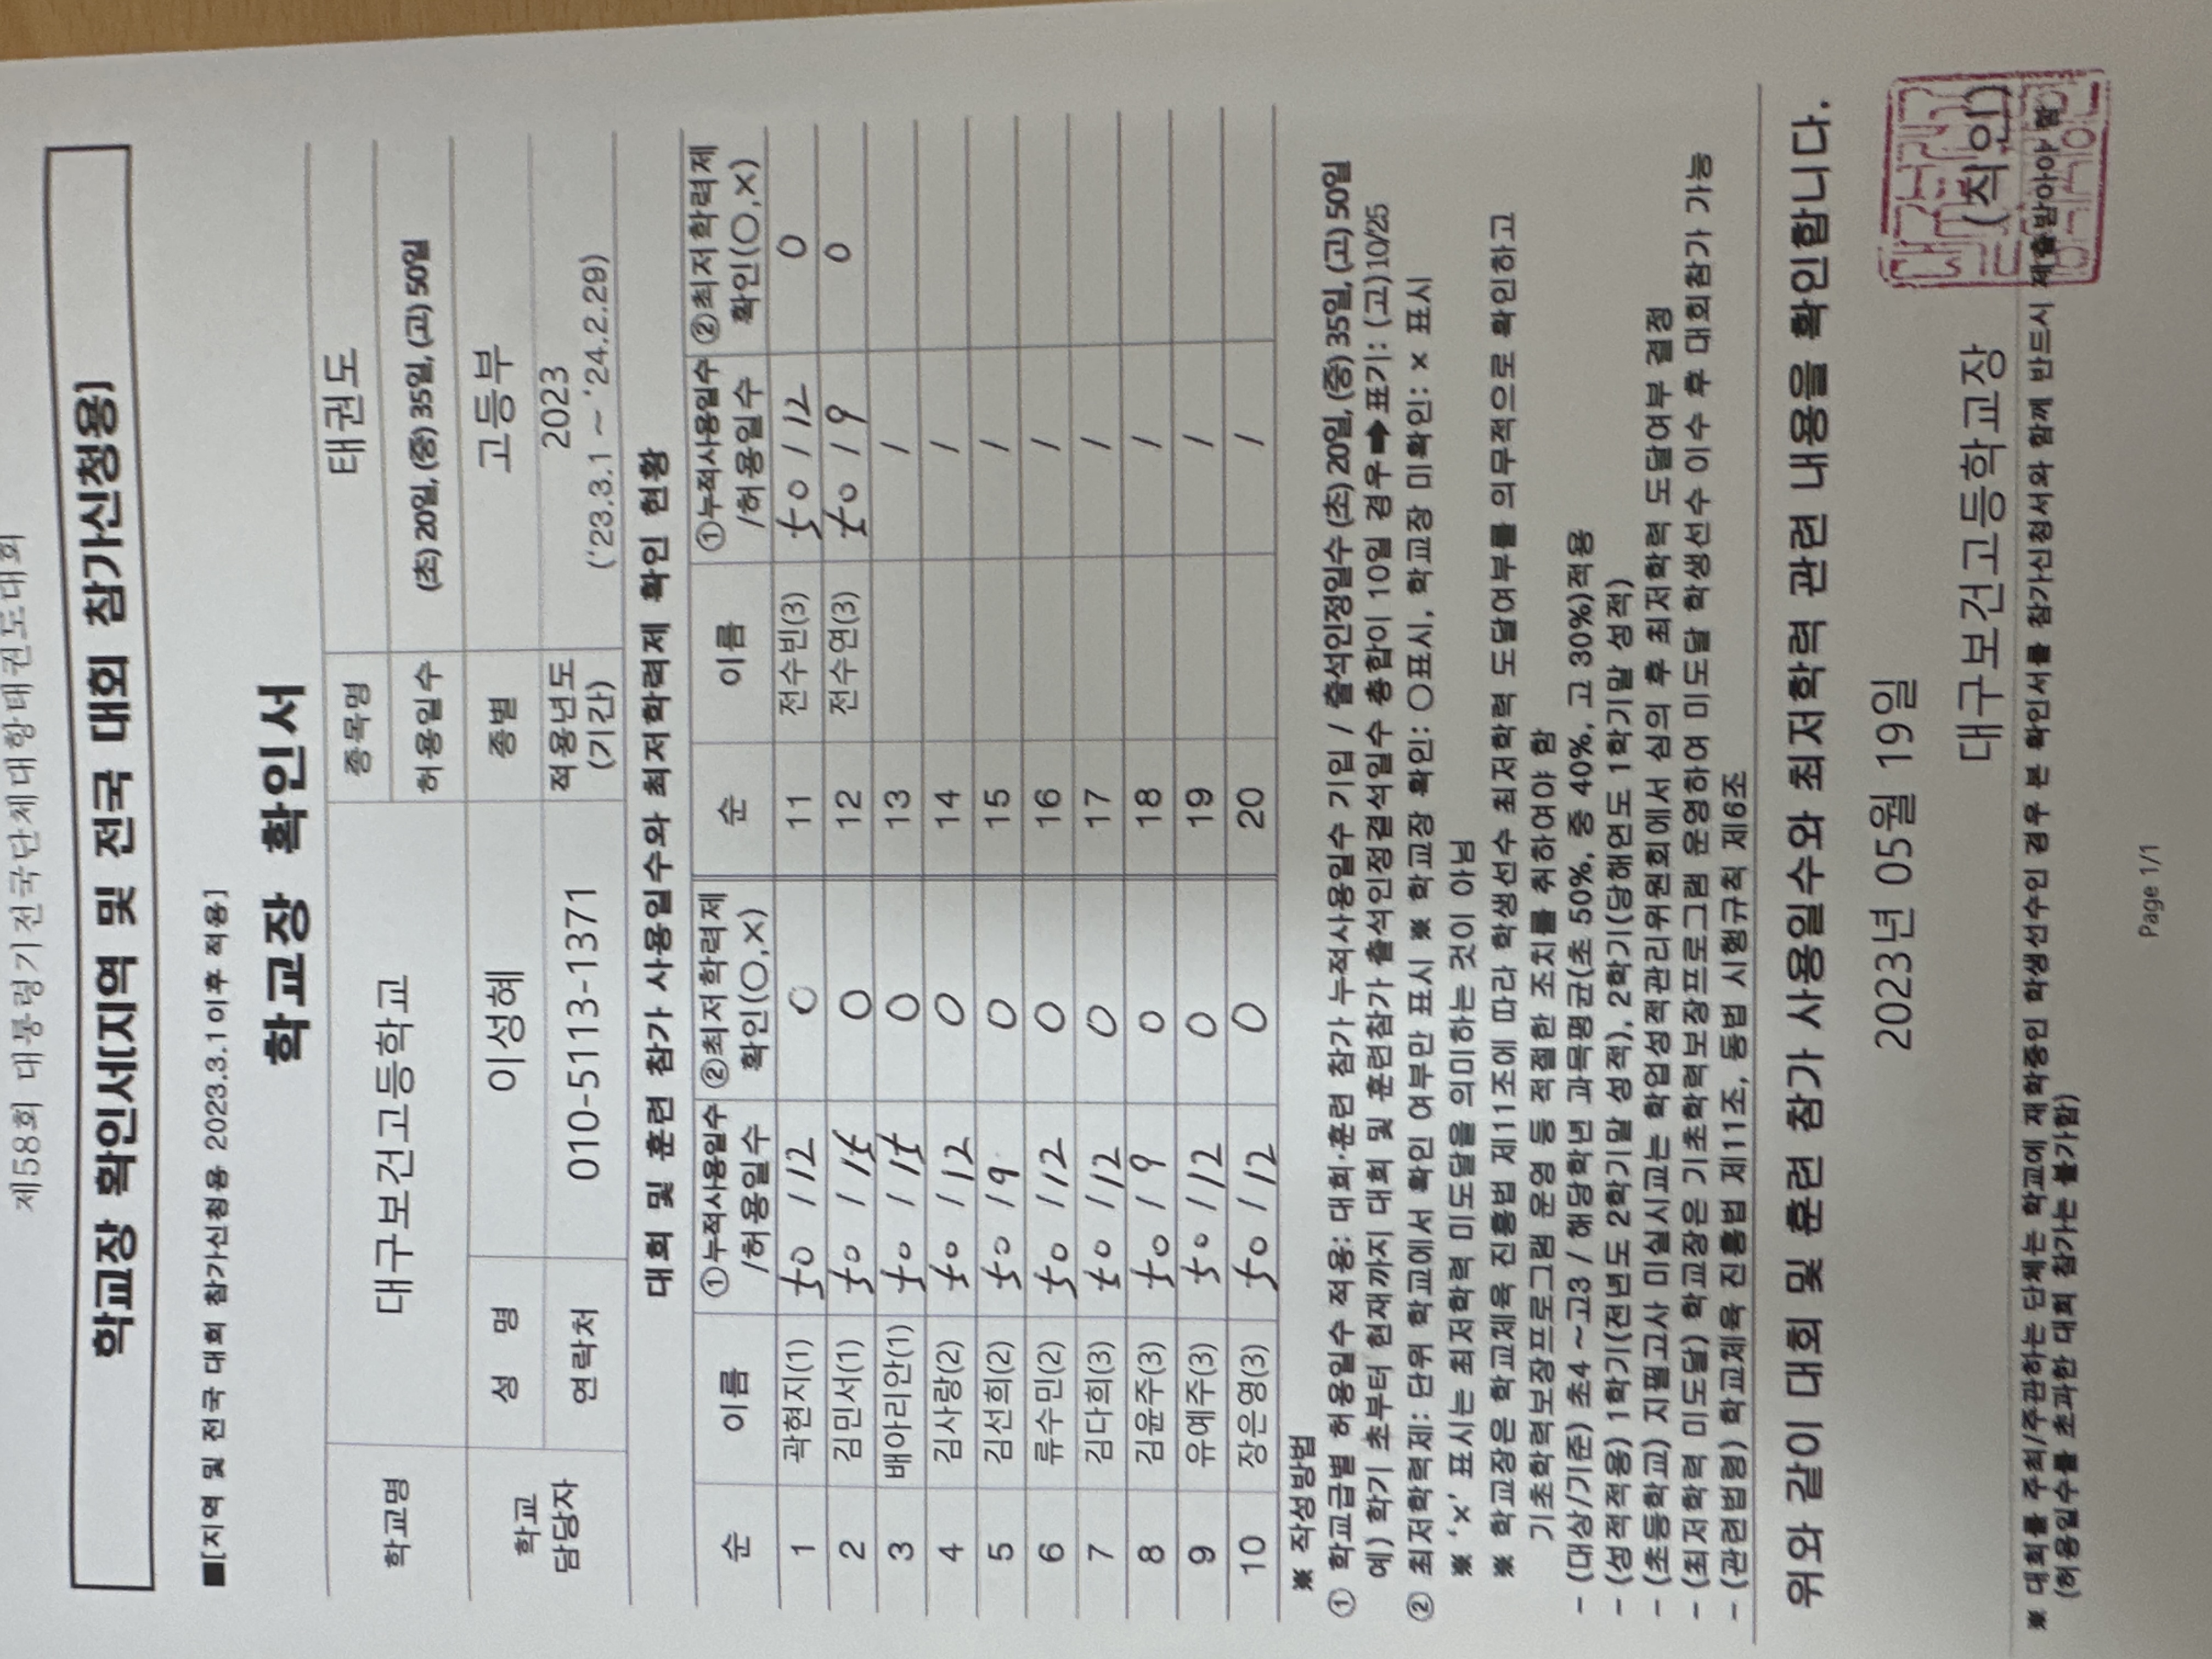 제58회 대통령기 전국단체대항태권도대회
학교장 확인서[지역 및 전국 대회 참가신청용]
■[지역 및 전국 대회 참가신청용 2023.3.1이후 적용]
학교장 확인서
학교명 대구보건고등학교 종목명 태권도
허용일수 (초) 20일, (중) 35일, (고) 50일
학교 담당자 성 명 이성혜 종별 고등부
연락처 010-5113-1371 적용년도 (기간) 2023 ('23.3.1 ~ '24.2.29)
대회 및 훈련 참가 사용일수와 최저학력제 확인 현황
순 이름 ①누적사용일수 /허용일수 ②최저학력제 확인(○,×) 순 이름 ①누적사용일수 /허용일수 ②최저학력제 확인(○,×)
1 곽현지(1) 50 / 12 ○ 11 전수빈(3) 50 / 12 ○
2 김민서(1) 50 / 15 ○ 12 전수연(3) 50 / 9 ○
3 배아리안(1) 50 / 15 ○ 13 /
4 김사랑(2) 50 / 12 ○ 14 /
5 김선희(2) 50 / 9 ○ 15 /
6 류수민(2) 50 / 12 ○ 16 /
7 김다희(3) 50 / 12 ○ 17 /
8 김윤주(3) 50 / 9 ○ 18 /
9 유예주(3) 50 / 12 ○ 19 /
10 장은영(3) 50 / 12 ○ 20 /
※ 작성방법
① 학교급별 허용일수 적용: 대회·훈련 참가 누적사용일수 기입 / 출석인정일수 (초) 20일, (중) 35일, (고) 50일
예) 학기 초부터 현재까지 대회 및 훈련참가 출석인정결석일수 총합이 10일 경우➡표기: (고)10/25
② 최저학력제: 단위 학교에서 확인 여부만 표시 ※ 학교장 확인: ○표시, 학교장 미확인: × 표시
※ '×' 표시는 최저학력 미도달을 의미하는 것이 아님
※ 학교장은 학교체육 진흥법 제11조에 따라 학생선수 최저학력 도달여부를 의무적으로 확인하고
기초학력보장프로그램 운영 등 적절한 조치를 취하여야 함
- (대상/기준) 초4 ~고3 / 해당학년 과목평균(초 50%, 중 40%, 고 30%)적용
- (성적적용) 1학기(전년도 2학기말 성적), 2학기(당해연도 1학기말 성적)
- (초등학교) 지필고사 미실시교는 학업성적관리위원회에서 심의 후 최저학력 도달여부 결정
- (최저학력 미도달) 학교장은 기초학력보장프로그램 운영하여 미도달 학생선수 이수 후 대회참가 가능
- (관련법령) 학교체육 진흥법 제11조, 동법 시행규칙 제6조
위와 같이 대회 및 훈련 참가 사용일수와 최저학력 관련 내용을 확인합니다.
2023년 05월 19일
대구보건고등학교장 (직인)
※ 대회를 주최/주관하는 단체는 학교에 재학중인 학생선수인 경우 본 확인서를 참가신청서와 함께 반드시 제출받아야 함
(허용일수를 초과한 대회 참가는 불가함)
Page 1/1